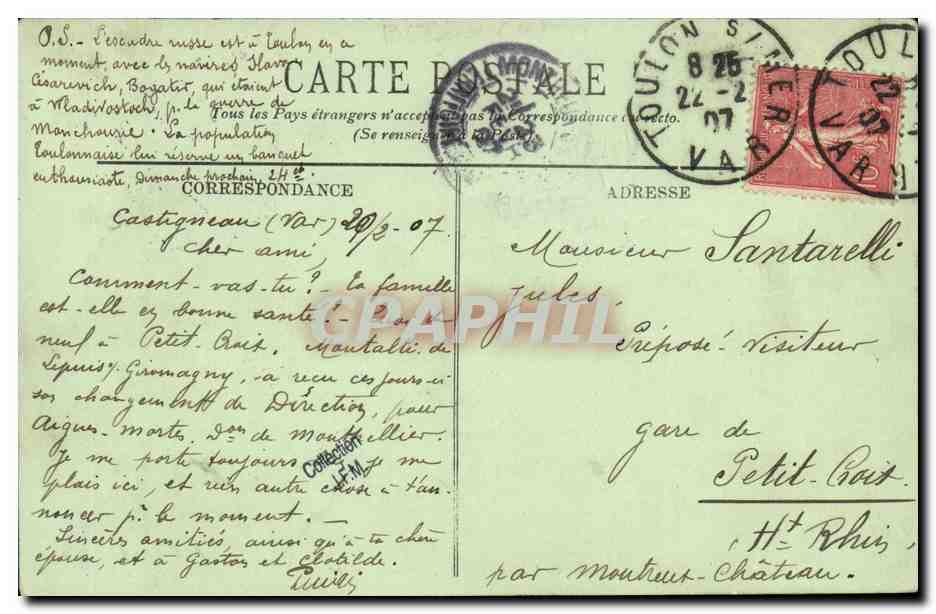 P.S. - L'escadre russe est à Toulon en ce
moment, avec les navires Slava
Césarevich, Bogatir, qui étaient
à Wladivostoch, p. la guerre de
Manchourie. La population
toulonnaise lui réserve un banquet
enthousiaste, Dimanche prochain, 24 ct.
CARTE POSTALE
Tous les Pays étrangers n'acceptent pas la Correspondance au recto.
(Se renseigner à la Poste)
TOULON S/MER
8 25
22 - 2
07
VAR
TOULON
22
07
VAR
10
CORRESPONDANCE
Castigneau (Var) 20/2-07
Cher ami,
Comment-vas-tu? - La famille
est-elle en bonne santé? - Quoi de
neuf à Petit-Croix. Montalti de
Lepuis s/ Giromagny, a reçu ces jours-ci
son changement de Direction, pour
Aigues-mortes, Don de Montpellier.
Je me porte toujours je me
plais ici, et rien autre chose à t'an-
noncer p. le moment. -
Sincères amitiés, ainsi qu'à ta chère
épouse, et à Gaston et Clotilde.
ADRESSE
Monsieur Santarelli
Jules,
Préposé-Visiteur
gare de
Petit-Croix
Ht Rhin
par Montreux-Château.
CPAPHIL
Collection
J.F.M.